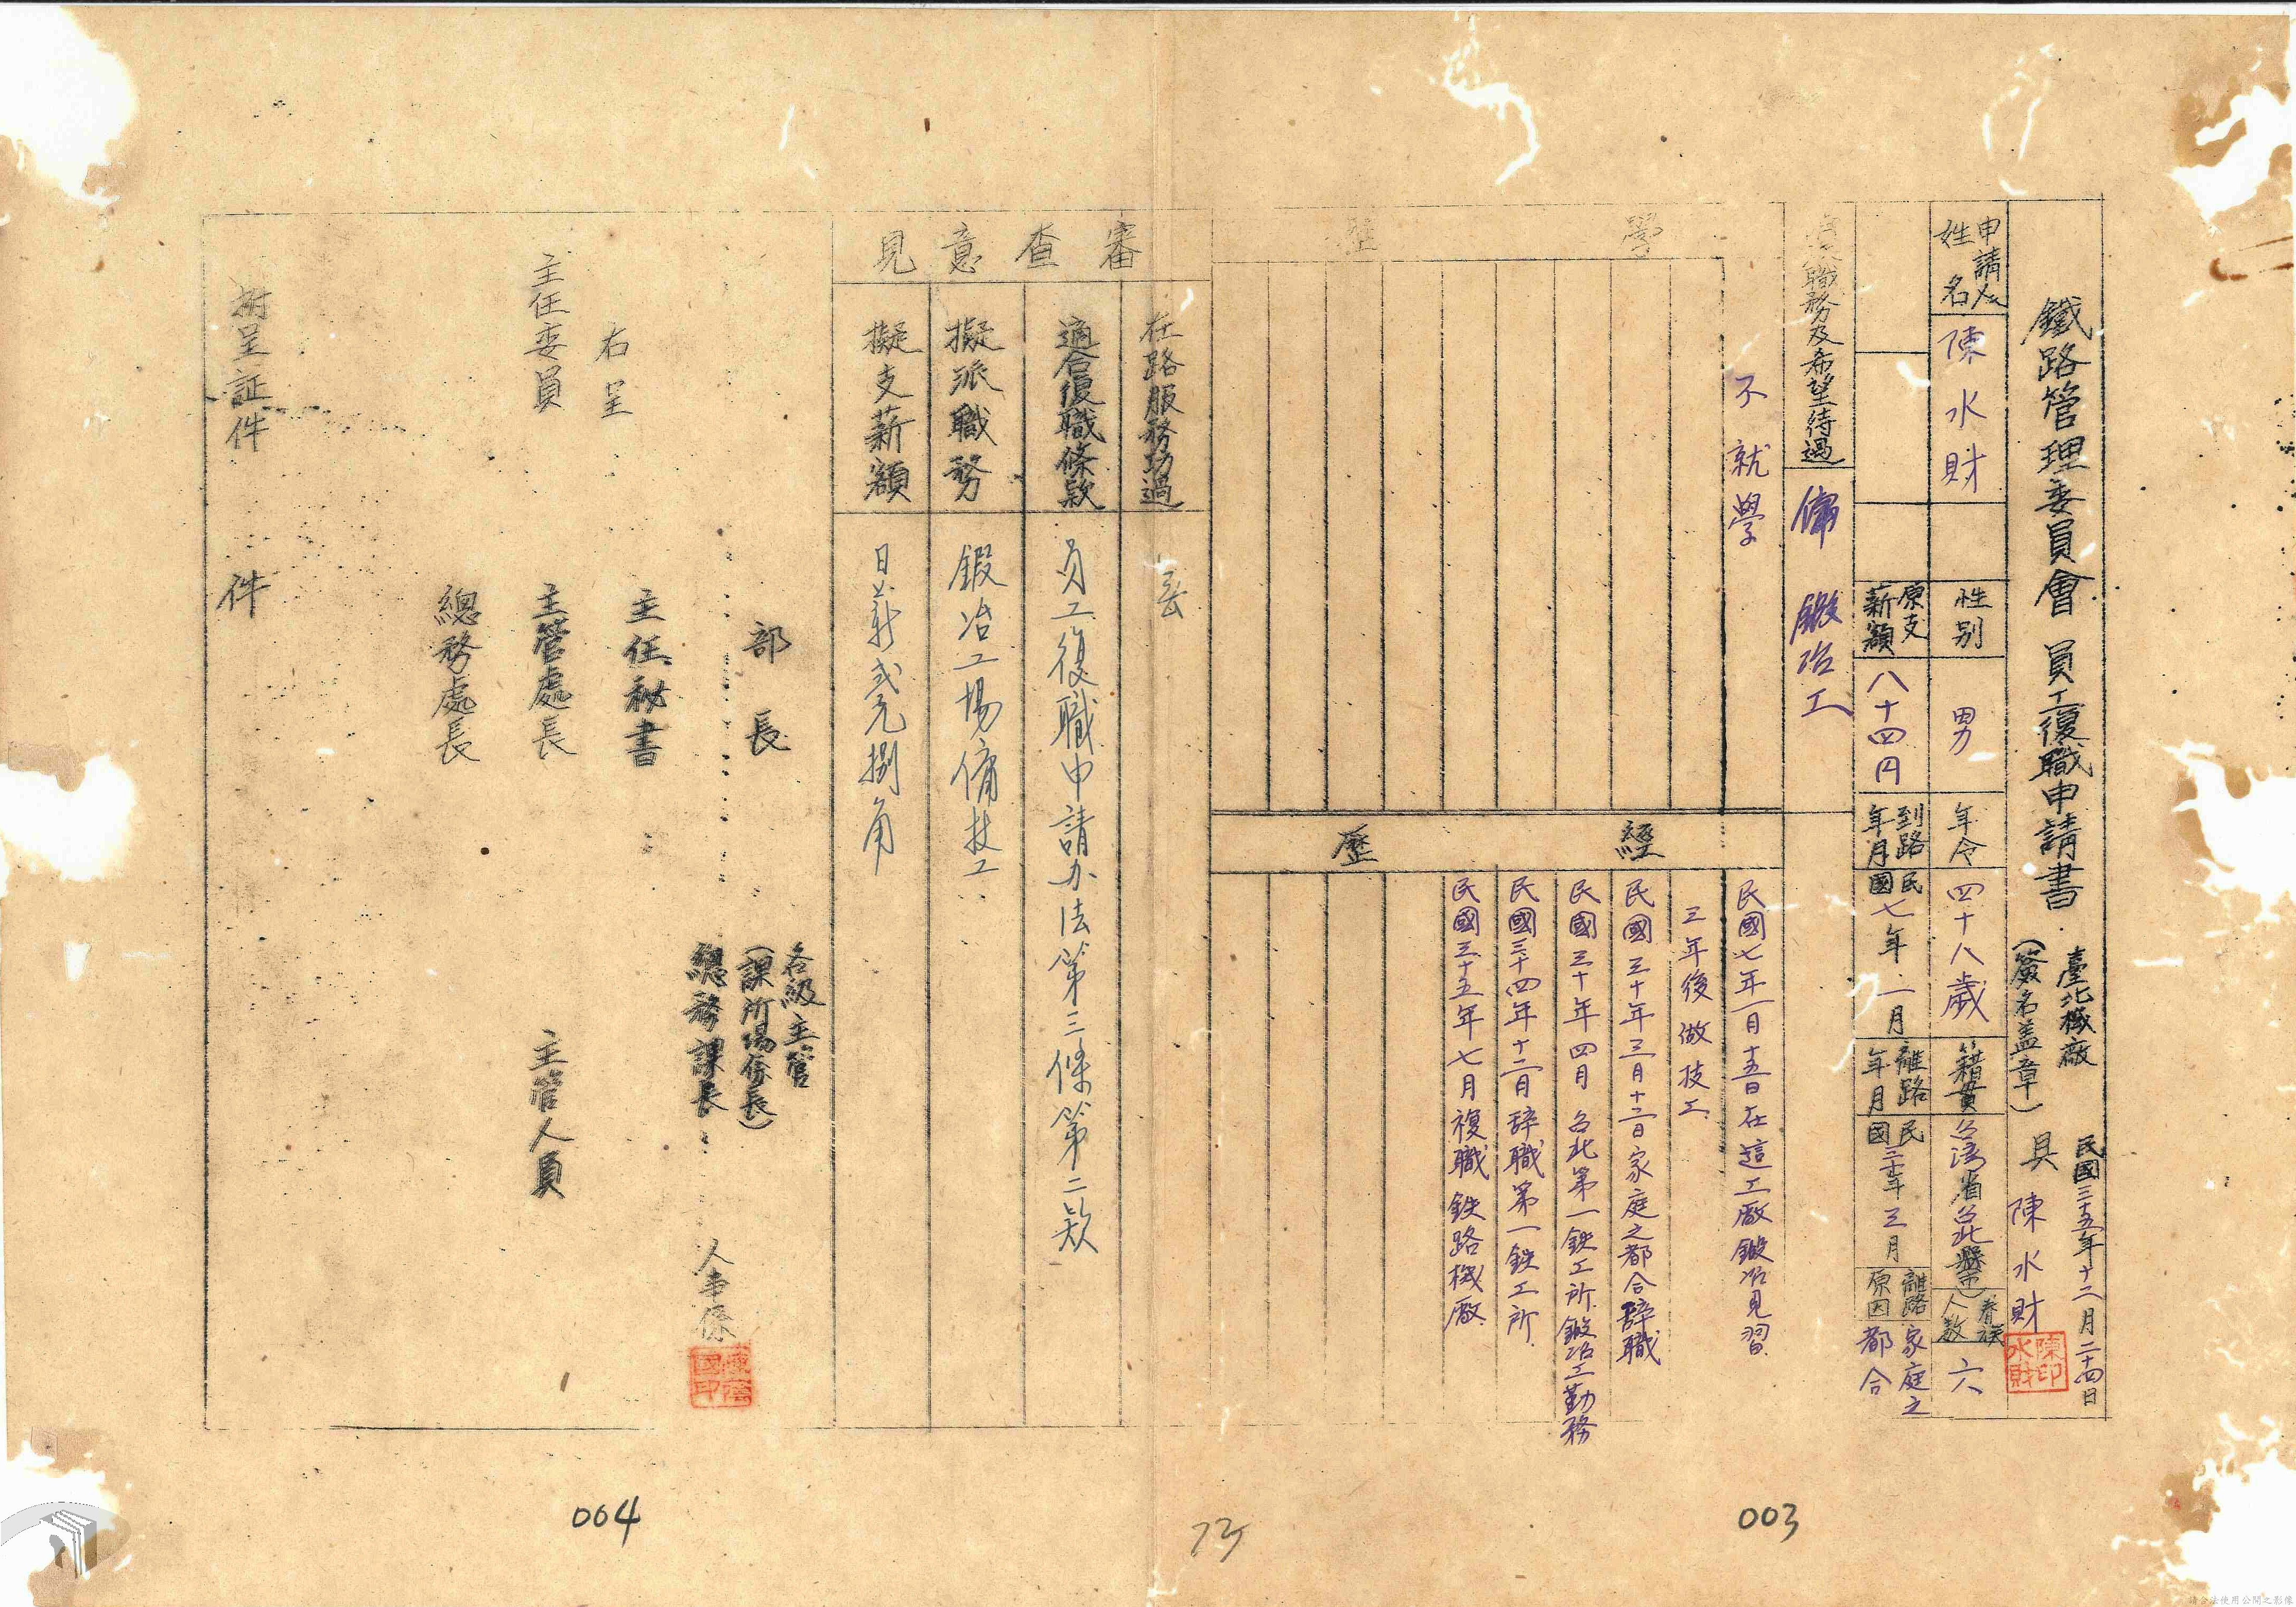 鐵路管理委員會 員工復職申請書
臺北機廠
(簽名盖章)
民國三十五年十二月二十四日
具 陳水財
陳水財印
申請人
姓名
陳水財
性别
男
年令
四十八歲
籍貫
台湾省台北縣(市)
眷族
人数
六
原支
薪額
八十四円
到路
年月
民國七年一月
離路
年月
民國三十年三月
離路
原因
家庭之
都合
職務及希望待過
傭 鍛冶工
學 歷
不就學
經 歷
民國七年一月十五日在這工廠鍛冶見習
三年後做技工
民國三十年三月十二日家庭之都合辞職
民國三十年四月台北第一鉄工所鍛冶工勤務
民國三十四年十二月辞職第一鉄工所
民國三十五年七月複職鉄路機廠
審查意見
在路服務功過
適合復職條款
員工復職申請办法第三條第二款
擬派職務
鍛冶工場傭技工
擬支薪額
日薪弍元捌角
各級主管
(課所場係長)
部長
總務課長
人事係
主任秘書
右呈
主任委員
主管處長
主管人員
總務處長
附呈証件 件
004
73
003
請合法使用公開之影像